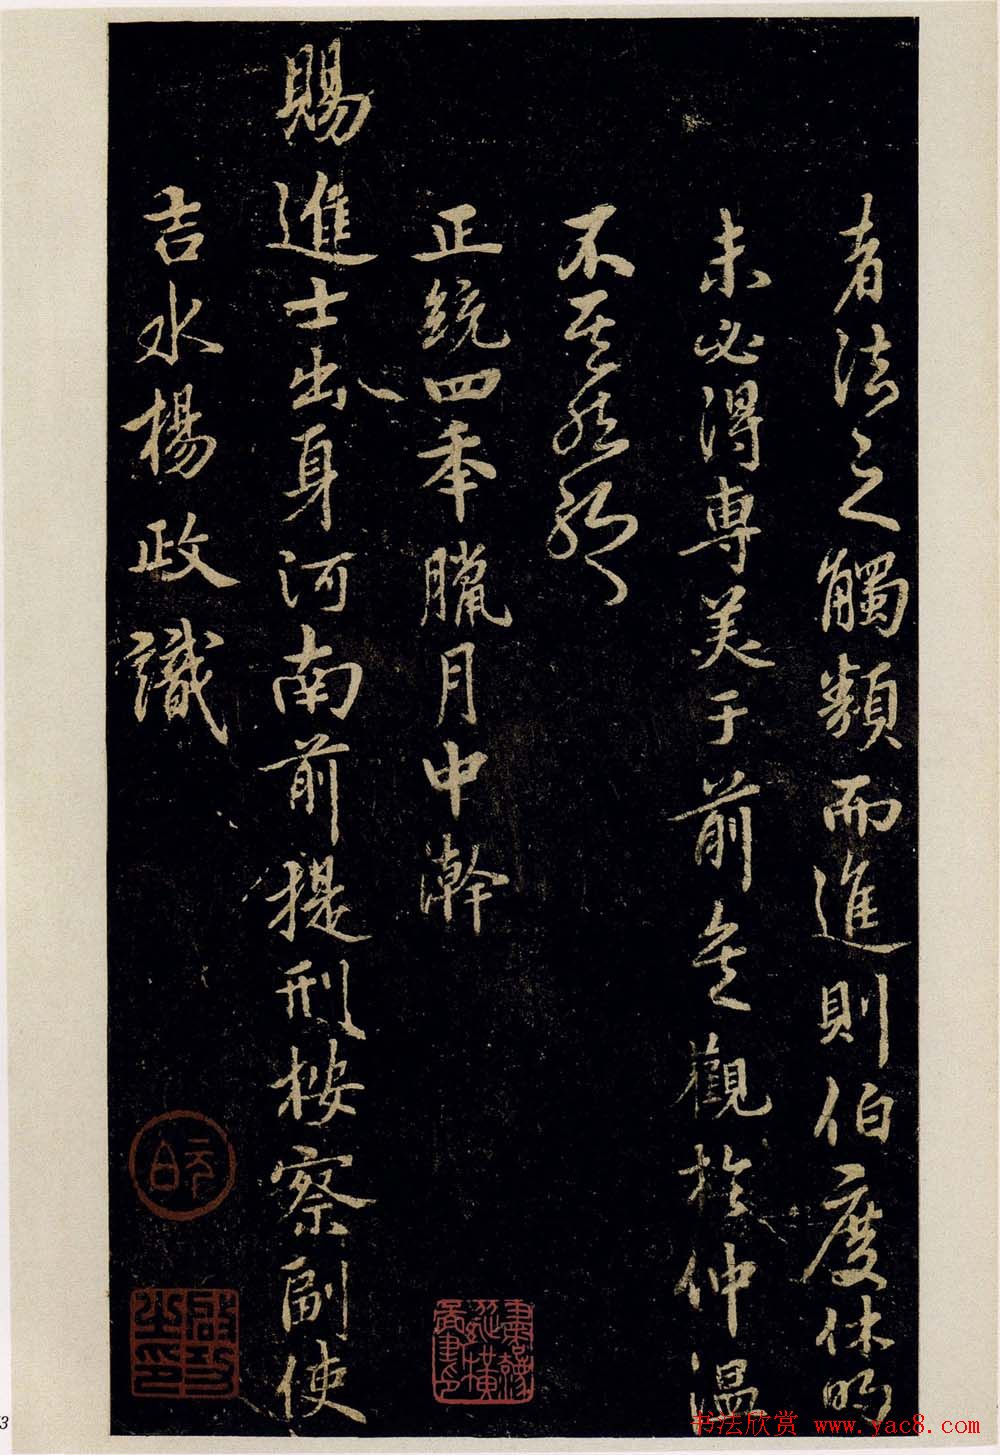 者法之觸類而進則伯度休明
未必得專美于前矣觀於仲溫
不其然耶
正統四年臘月中澣
賜進士出身河南前提刑按察副使
吉水楊政識
书法欣赏 www.yac8.com